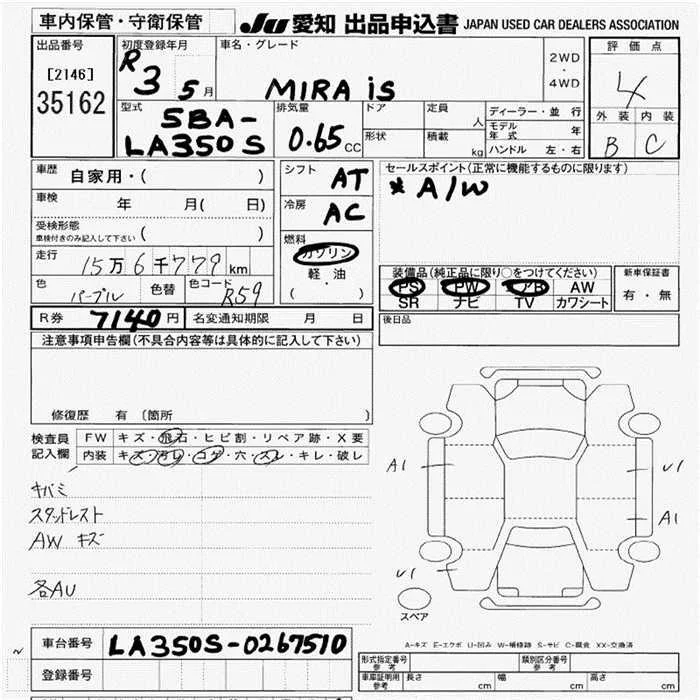 車内保管・守衛保管
JU 愛知 出品申込書 JAPAN USED CAR DEALERS ASSOCIATION
出品番号
[2146]
35162
初度登録年月
R
3 5月
車名・グレード
MIRA is
2WD
・
4WD
評価点
4
外装 内装
B C
型式
5BA-
LA350S
排気量
0.65 CC
ドア
定員
人
形状
積載
kg
ディーラー・並行
モデル年式 年
ハンドル 左・右
車歴
自家用・( )
車検
年 月( 日)
受検形態
車検付きのみ記入して下さい ( )
走行
15万6千779km
色
パープル
色替
色コード
R59
シフト
AT
冷房
AC
燃料
ガソリン
軽油
・
( )
セールスポイント(正常に機能するものに限ります)
* A/W
装備品(純正品に限り○をつけてください)
PS PW エアB AW
SR ナビ TV カワシート
新車保証書
有・無
R券 7140円
名変通知期限 月 日
後日品
注意事項申告欄(不具合内容等は具体的に記入して下さい)
修復歴 有 〔箇所 〕
検査員
記入欄
FW キズ・飛石・ヒビ割・リペア跡・X要
内装 キズ・汚レ・コゲ・穴・スレ・キレ・破レ
キバミ
スタッドレスト
AW キズ
各AU
A1
U1
A1
U1
スペア
A-キズ E-エクボ U-凹み W-補修跡 S-サビ C-腐食 XX-交換済
車台番号
LA350S-0267510
登録番号
形式指定番号
参考
類別区分番号
参考
車庫証明用
参考
長さ cm
幅 cm
高さ cm